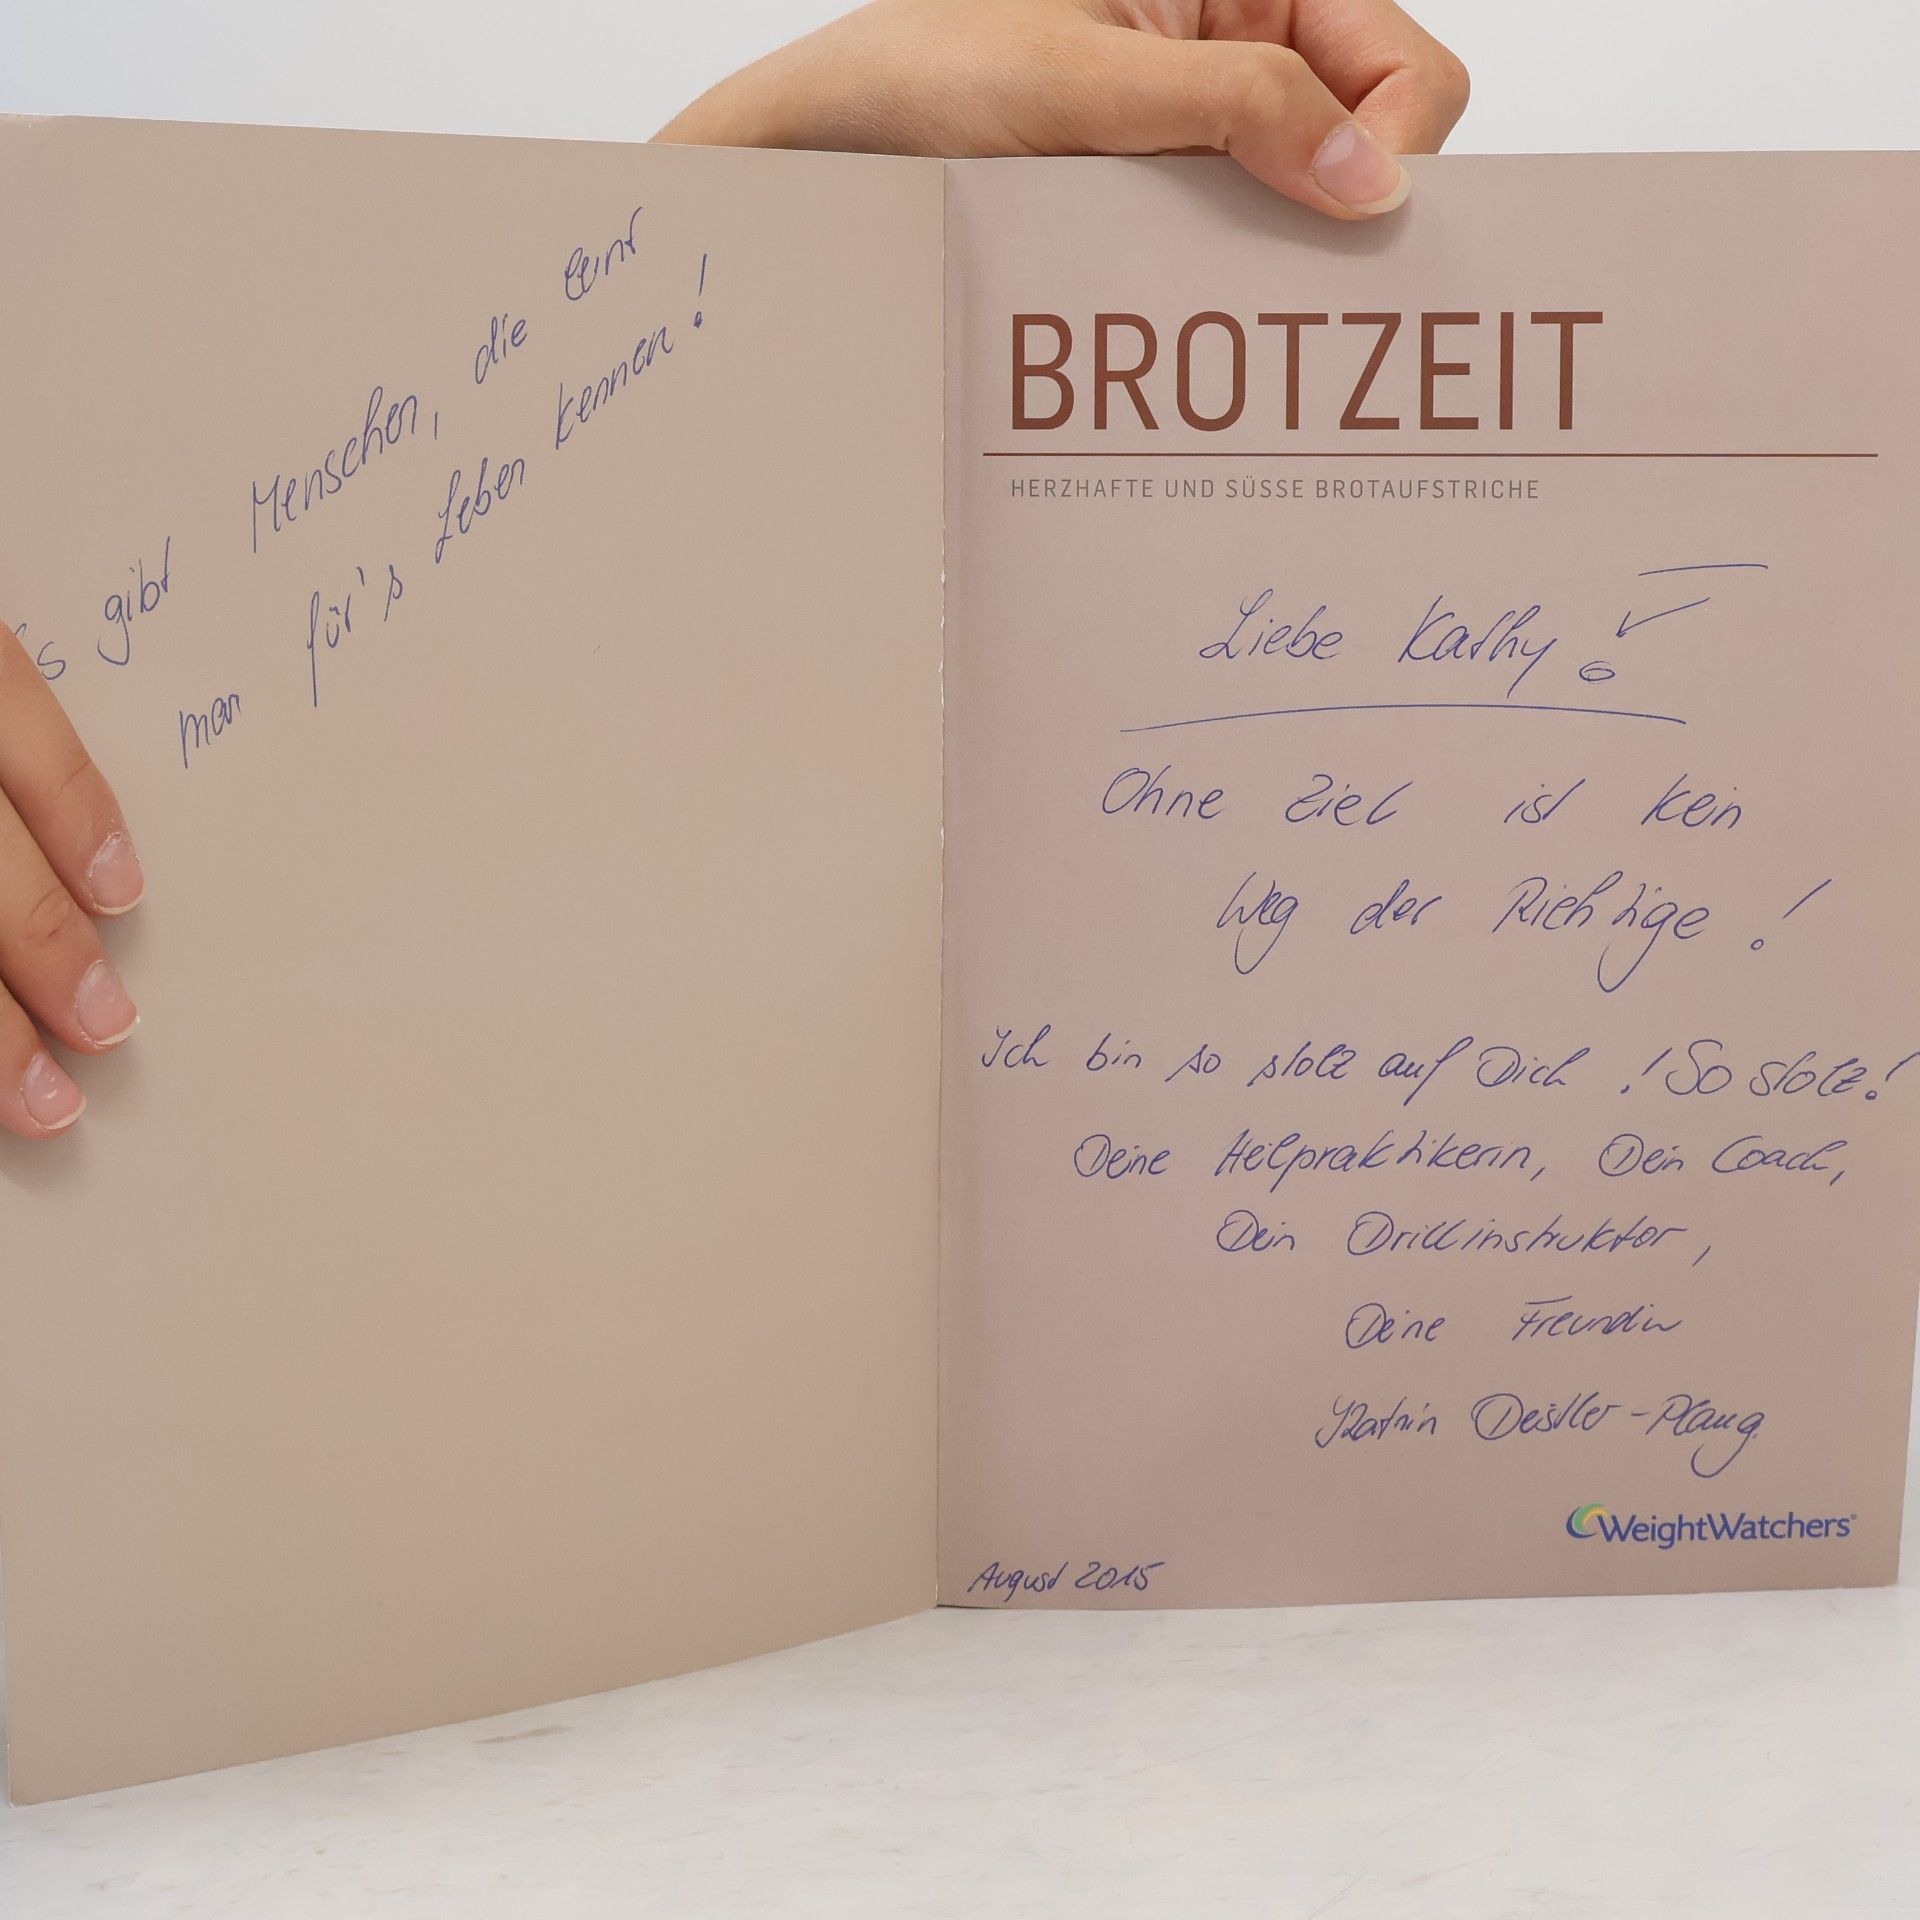 gibt Menschen, die lernt
man für's Leben kennen!
BROTZEIT
HERZHAFTE UND SÜSSE BROTAUFSTRICHE
Liebe Kathy!
Ohne Ziel ist kein
Weg der Richtige!
Ich bin so stolz auf Dich! So stolz!
Deine Heilpraktikerin, Dein Coach,
Dein Drillinstruktor,
Deine Freundin
Katrin
WeightWatchers
August 2015